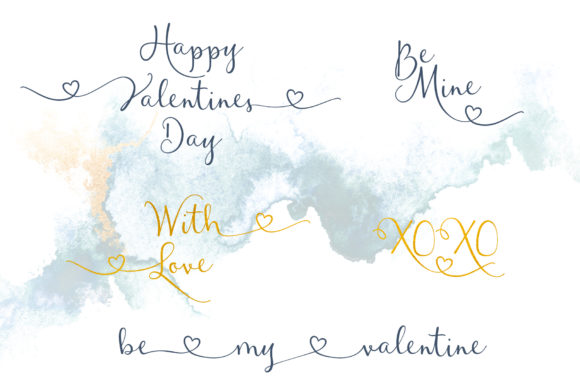 Happy
Valentines
Day
Be
Mine
With
Love
XOXO
be my valentine